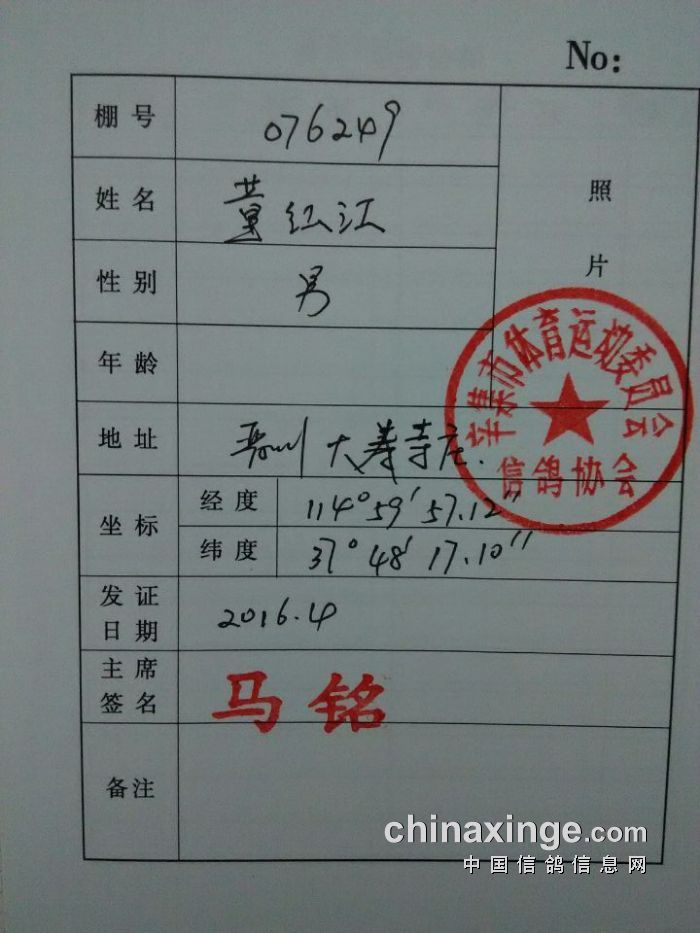 No:
棚号 076249
照片
姓名 董红江
性别 男
年龄
地址 晋州大寿寺庄.
辛集市体育运动委员会
信鸽协会
坐标 经度 114°59′57.12″
纬度 37°48′17.10″
发证日期 2016.4
主席签名 马铭
备注
chinaxinge.com
中国信鸽信息网